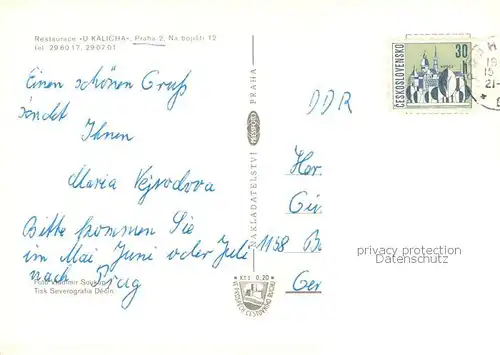 Restaurace »U KALICHA«, Praha 2, Na bojišti 12
Tel. 29 60 17, 29 07 01
Einen schönen Gruß
sendet
Ihnen
Maria Vejvodova
Bitte kommen Sie
im Mai Juni oder Juli
nach Prag
Foto Vladimír
Tisk Severografia Děčín
NAKLADATELSTVÍ
PRESSFOTO
PRAHA
Kčs 0,20
ČESKOSLOVENSKO
30
h
DDR
1158
privacy protection
Datenschutz